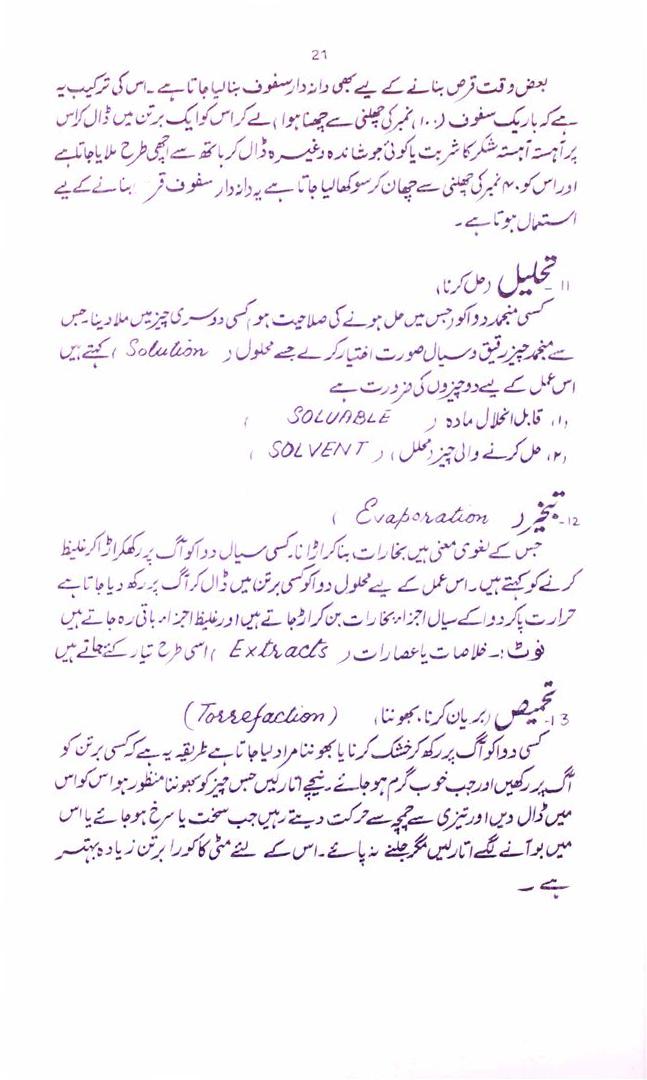 21
بعض وقت قرص بنانے کے لیے بھی دانہ دار سفوف بنا لیا جاتا ہے ۔ اس کی ترکیب یہ
ہے کہ باریک سفوف (۱۰۰ نمبر کی چھلنی سے چھنا ہوا) لے کر اس کو ایک برتن میں ڈال کر اس
پر آہستہ آہستہ شکر کا شربت یا کوئی جوشاندہ وغیرہ ڈال کر ہاتھ سے اچھی طرح ملایا جاتا ہے
اور اس کو ۴۰ نمبر کی چھلنی سے چھان کر سوکھا لیا جاتا ہے یہ دانہ دار سفوف قر بنانے کے لیے
استعمال ہوتا ہے ۔
۱۱ - تحلیل (حل کرنا)
کسی منجمد دوا کو (جس میں حل ہونے کی صلاحیت ہو) کسی دوسری چیز میں ملا دینا ۔ جس
سے منجمد چیز رقیق و سیال صورت اختیار کرے جسے محلول ( Solution ) کہتے ہیں
اس عمل کے لیے دو چیزوں کی ضرورت ہے
(۱) قابل انحلال مادہ ( SOLUABLE )
(۲) حل کرنے والی چیز (محلل) ( SOLVENT )
12- تبخیر ( Evaporation )
جس کے لغوی معنی ہیں بخارات بنا کر اڑانا ۔ کسی سیال دوا کو آگ پر رکھکر اڑا کر غلیظ
کرنے کو کہتے ہیں ۔ اس عمل کے لیے محلول دوا کو کسی برتن میں ڈال کر آگ پر رکھ دیا جاتا ہے
حرارت پا کر دوا کے سیال اجزاء بخارات بن کر اڑ جاتے ہیں اور غلیظ اجزاء باقی رہ جاتے ہیں
نوٹ :۔ خلاصات یا عصارات ( Extracts ) اسی طرح تیار کئے جاتے ہیں
13- تحمیص (بریان کرنا ، بھوننا) (Torrefaction)
کسی دوا کو آگ پر رکھ کر خشک کرنا یا بھوننا مراد لیا جاتا ہے طریقہ یہ ہے کہ کسی برتن کو
آگ پر رکھیں اور جب خوب گرم ہو جائے ۔ نیچے اتار لیں جس چیز کو بھوننا منظور ہو اس کو اس
میں ڈال دیں اور تیزی سے چمچہ سے حرکت دیتے رہیں جب سخت یا سرخ ہو جائے یا اس
میں بو آنے لگے اتار لیں مگر جلنے نہ پائے ۔ اس کے لئے مٹی کا کورا برتن زیادہ بہتر
ہے ۔